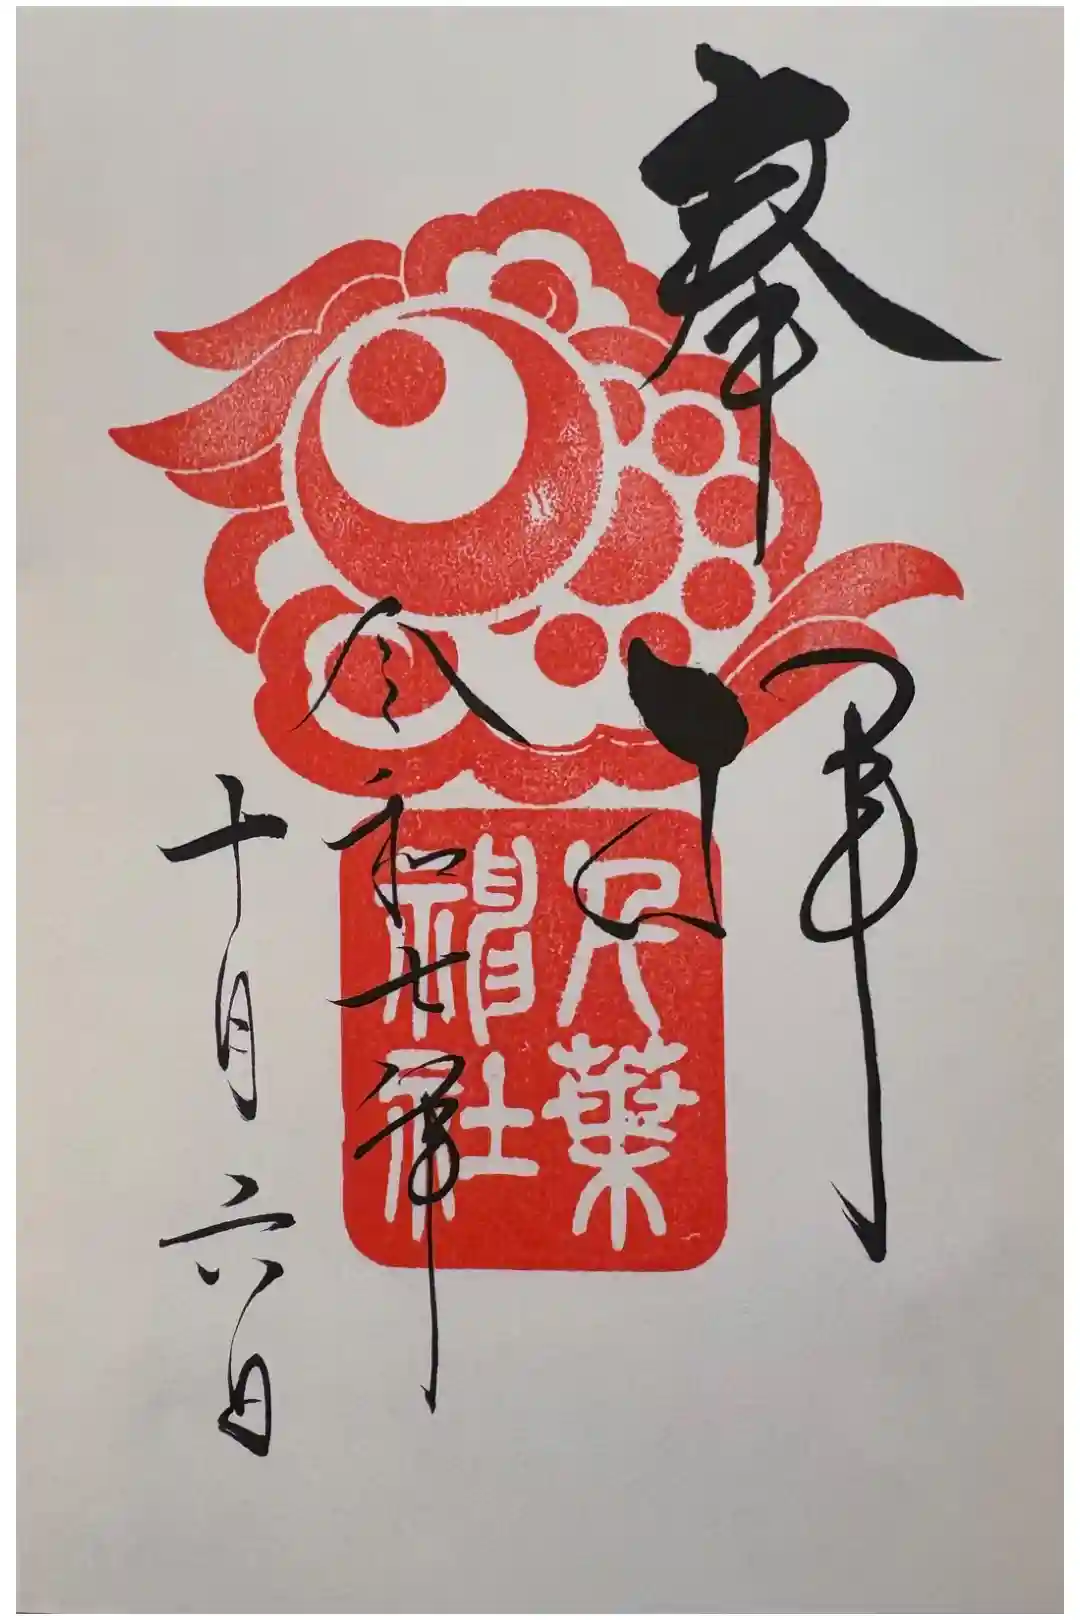 奉拝
千葉
神社
令和七年
十月六日